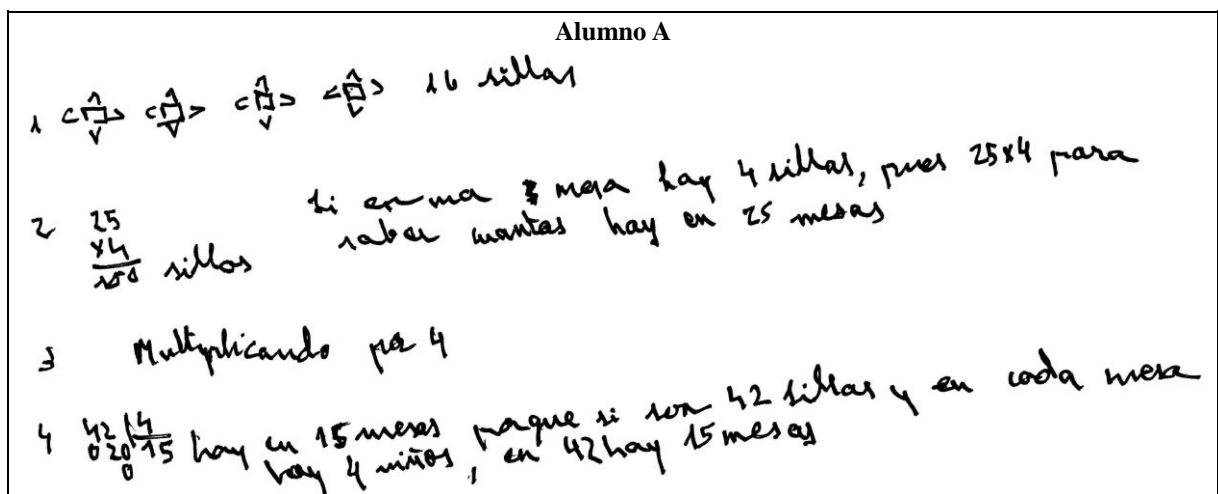 Alumno A
1 16 sillas
2 25 Si en una mesa hay 4 sillas, pues 25x4 para
x4 saber cuantas hay en 25 mesas
150 sillas
3 Multiplicando por 4
4 42 4 hay en 15 meses porque si son 42 sillas y en cada mesa
020 15 hay 4 niños, en 42 hay 15 mesas
0